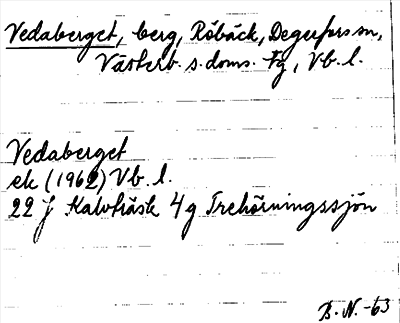 Vedaberget, berg, Röbäck, Degerfors sn,
Västerb. s. doms. fg, Vb. l.
Vedaberget
ek (1962) Vb. l.
22 J Kalvträsk 4 g Trehörningssjön
B. N. -63